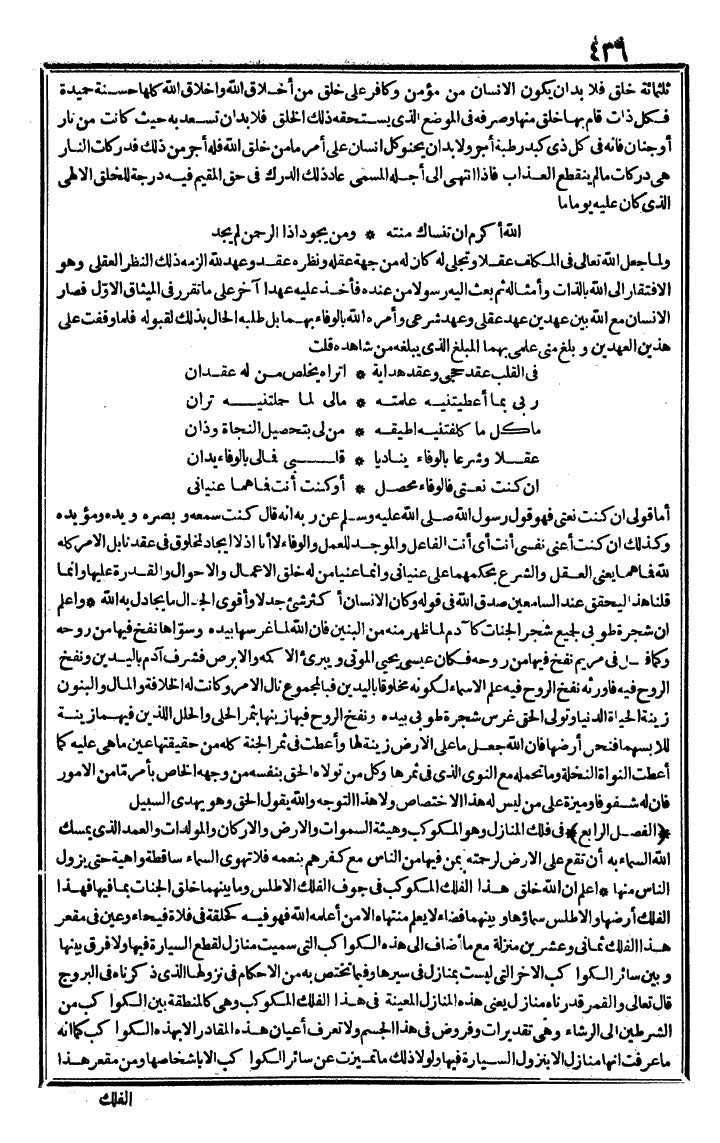 ٤٣٩
ثلثمائة خلق فلا بد ان يكون الانسان من مؤمن وكافر على خلق من أخلاق الله واخلاق الله كلها حسنة حميدة
فكل ذات قام بها خلق منها وصرفه فى الموضع الذى يستحقه ذلك الخلق فلا بد ان تسعد به حيث كانت من نار
أو جنان فانه فى كل ذى كبد رطبة أجر ولا بد ان يحنو كل انسان على أمر ما من خلق الله فله أجر من ذلك فدركات النار
هى دركات ما لم ينقطع العذاب فاذا انتهى الى أجله المسمى عاد ذلك الدرك فى حق المقيم فيه درجة للخلق الالهى
الذى كان عليه يوما ما
الله أكرم ان تنساك منته * ومن يجود اذا الرحمن لم يجد
ولما جعل الله تعالى فى المكلف عقلا وتجلى له كان له من جهة عقله ونظره عقد وعهد لله الزمه ذلك النظر العقلى وهو
الافتقار الى الله بالذات وأمثاله ثم بعث اليه رسولا من عنده فأخذ عليه عهدا آخر على ما تقرر فى الميثاق الاوّل فصار
الانسان مع الله بين عهدين عهد عقلى وعهد شرعى وأمره الله بالوفاء بهما بل طلبه الحال بذلك لقبوله فلما وقفت على
هذين العهدين وبلغ منى علمى بهما المبلغ الذى يبلغه من شاهده قلت
فى القلب عقد حجى وعقد هداية * اتراه يخلص من له عقدان
ربى بما أعطيتنيه علمته * مالى لما حملتنيه تران
ما كل ما كلفتنيه اطيقه * من لى بتحصيل النجاة وذان
عقلا وشرعا بالوفاء يناديا * قلبى فمالى بالوفاء يدان
ان كنت نعتى فالوفاء محصل * أو كنت أنت فاهما عنيانى
أما قولى ان كنت نعتى فهو قول رسول الله صلى الله عليه وسلم عن ربه انه قال كنت سمعه وبصره ويده ومؤيده
وكذلك ان كنت أعنى نفسى أنت أى أنت الفاعل والموجد للعمل والوفاء لا أنا اذ لا ايجاد لمخلوق فى عقدنا بل الامر كله
لله فاهما يعنى العقل والشرع بحكمهما على عنيانى وانما عنيا من له خلق الاعمال والاحوال والقدرة عليها وانما
قلنا هذا ليحقق عند السامعين صدق الله فى قوله وكان الانسان أكثر شئ جدلا وأقوى الجدال ما يجادل به الله * واعلم
ان شجرة طوبى لجميع شجر الجنات كآدم لما ظهر منه من البنين فان الله لما غرسها بيده وسوّاها نفخ فيها من روحه
وكما فعل فى مريم نفخ فيها من روحه فكان عيسى يحيى الموتى ويبرئ الاكمه والابرص فشرف آدم باليدين ونفخ
الروح فيه فاورثه نفخ الروح فيه علم الاسماء لكونه مخلوقا باليدين فبالمجموع نال الامر وكانت له الخلافة والمال والبنون
زينة الحياة الدنيا وتولى الحق غرس شجرة طوبى بيده ونفخ الروح فيها زينها بثمر الحلى والحلل اللذين فيهما زينة
للابسهما فنحن أرضها فان الله جعل ما على الارض زينة لها وأعطت فى ثمر الجنة كله من حقيقتها عين ما هى عليه كما
أعطت النواة النخلة وما تحمله مع النوى الذى فى ثمرها وكل من تولاه الحق بنفسه من وجهه الخاص بأمر مّا من الامور
فان له شفوفا وميزة على من ليس له هذا الاختصاص ولا هذا التوجه والله يقول الحق وهو يهدى السبيل
﴿الفصل الرابع﴾ فى فلك المنازل وهو المكوكب وهيئة السموات والارض والاركان والمولدات والعمد الذى يمسك
الله السماء به أن تقع على الارض لرحمته بمن فيها من الناس مع كفرهم بنعمه فلا تهوى السماء ساقطة واهية حتى يزول
الناس منها * اعلم ان الله خلق هذا الفلك المكوكب فى جوف الفلك الاطلس وما بينهما خلق الجنات بما فيها فهذا
الفلك أرضها والاطلس سماؤها وبينهما فضاء لا يعلم منتهاه الا من أعلمه الله فهو فيه كحلقة فى فلاة فيحاء وعين فى مقعر
هذا الفلك ثمانى وعشرين منزلة مع ما أضاف الى هذه الكواكب التى سميت منازل لقطع السيارة فيها ولا فرق بينها
وبين سائر الكواكب الاخر التى ليست بمنازل فى سيرها وفيما تختص به من الاحكام فى نزولها الذى ذكرناه فى البروج
قال تعالى والقمر قدرناه منازل يعنى هذه المنازل المعينة فى هذا الفلك المكوكب وهى كالمنطقة بين الكواكب من
الشرطين الى الرشاء وهى تقديرات وفروض فى هذا الجسم ولا تعرف أعيان هذه المقادر الا بهذه الكواكب كما انه
ما عرفت انها منازل الا بنزول السيارة فيها ولولا ذلك ما تميزت عن سائر الكواكب الا باشخاصها ومن مقعر هذا
الفلك